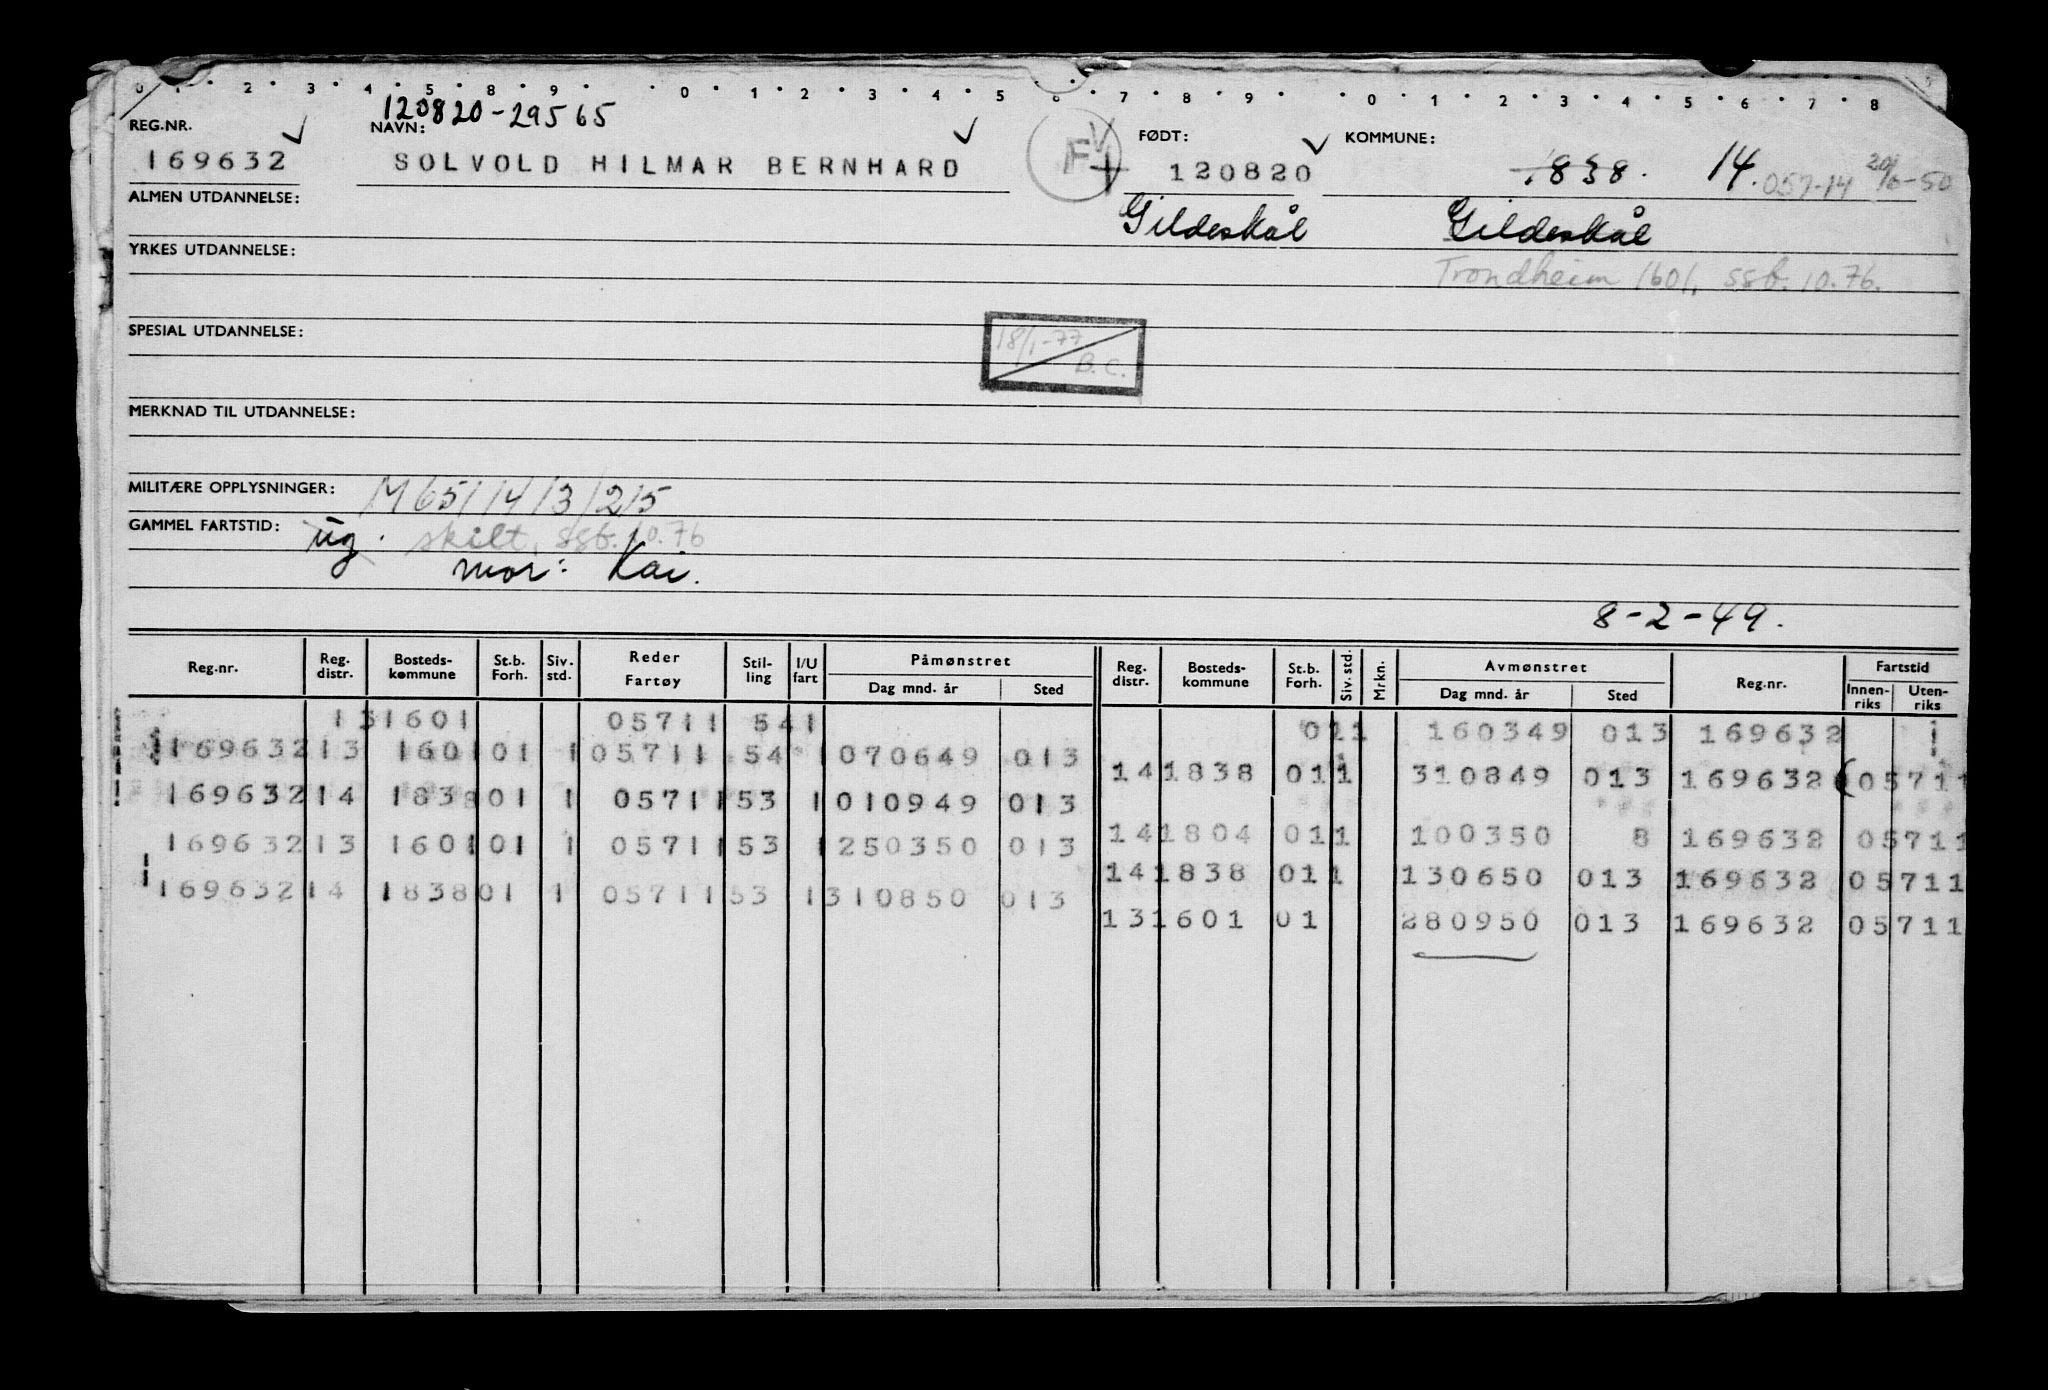 0 1 2 3 4 5 8 9 0 1 2 3 4 5 6 7 8 9 0 1 2 3 4 5 6 7 8
120820-29565
REG.NR. NAVN: FØDT: KOMMUNE:
169632 SOLVOLD HILMAR BERNHARD F 120820 1838. 14. 057-14 20/6-50
ALMEN UTDANNELSE: Gildeskål Gildeskål
YRKES UTDANNELSE: Trondheim 1601. ssb. 10.76.
SPESIAL UTDANNELSE: 18/1-77
B.C.
MERKNAD TIL UTDANNELSE:
MILITÆRE OPPLYSNINGER: M 65/14/3/2/5
GAMMEL FARTSTID: ug. skilt, ssb. 10.76
mor: Kai.
8-2-49.
Reg.nr. Reg. distr. Bosteds-kommune St.b. Forh. Siv. std. Reder Fartøy Stil-ling I/U fart Påmønstret Dag mnd. år Sted Reg. distr. Bosteds-kommune St.b. Forh. Siv. std. Mrkn. Avmønstret Dag mnd. år Sted Reg.nr. Fartstid Innen-riks Uten-riks
131601 05711 541 011 160349 013 169632 1
169632 13 1601 01 1 05711 54 1 070649 013
141838 011 310849 013 169632 05711
169632 14 1838 01 1 05711 53 1 010949 013
141804 011 100350 8 169632 05711
169632 13 1601 01 1 05711 53 1 250350 013
141838 011 130650 013 169632 05711
169632 14 1838 01 1 05711 53 1 310850 013
131601 01 280950 013 169632 05711